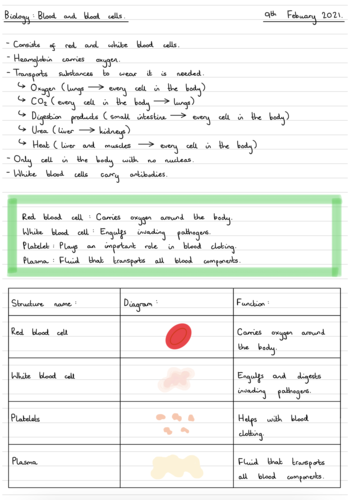 Biology: Blood and blood cells. 9th February 2021.
- Consists of red and white blood cells.
- Heamoglobin carries oxygen.
- Transports substances to wear it is needed.
↳ Oxygen (lungs → every cell in the body)
↳ CO2 (every cell in the body → lungs)
↳ Digestion products (small intestine → every cell in the body)
↳ Urea (liver → kidneys)
↳ Heat (liver and muscles → every cell in the body)
- Only cell in the body with no nucleus.
- White blood cells carry antibodies.
Red blood cell: Carries oxygen around the body.
White blood cell: Engulfs invading pathogens.
Platelet: Plays an important role in blood clotting.
Plasma: Fluid that transports all blood components.
Structure name: Diagram: Function:
Red blood cell Carries oxygen around
the body.
White blood cell Engulfs and digests
invading pathogens.
Platelets Helps with blood
clotting.
Plasma Fluid that transports
all blood components.